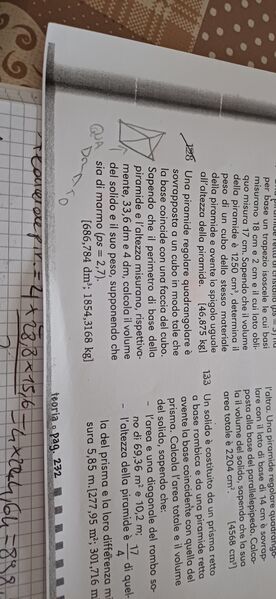 per base un trapezio isoscele le cui basi
misurano 18 cm e 2 cm e il cui lato obli-
quo misura 17 cm. Sapendo che il volume
della piramide è 1250 cm³, determina il
peso di un cubo dello stesso materiale
della piramide e avente lo spigolo uguale
all'altezza della piramide. [46,875 kg]
128 Una piramide regolare quadrangolare è
sovrapposta a un cubo in modo tale che
la base coincide con una faccia del cubo.
Sapendo che il perimetro di base della
piramide e l'altezza misurano, rispettiva-
mente, 33,6 dm e 4 dm, calcola il volume
del solido e il suo peso, supponendo che
sia di marmo (ps = 2,7).
[686,784 dm³; 1854,3168 kg]
QUADRATO
l'altra. Una piramide regolare quadrango-
lare con il lato di base di 14 cm è sovrap-
posta alla base del parallelepipedo. Calco-
la il volume del solido, sapendo che la sua
area totale è 2204 cm².
[4568 cm³]
133 Un solido è costituito da un prisma retto
a base rombica e da una piramide retta
avente la base coincidente con quella del
prisma. Calcola l'area totale e il volume
del solido, sapendo che:
- l'area e una diagonale del rombo so-
no di 69,36 m² e 10,2 m;
- l'altezza della piramide è 17/4 di quel-
la del prisma e la loro differenza mi-
sura 5,85 m. [277,95 m²; 301,716 m
teoria a pag. 232